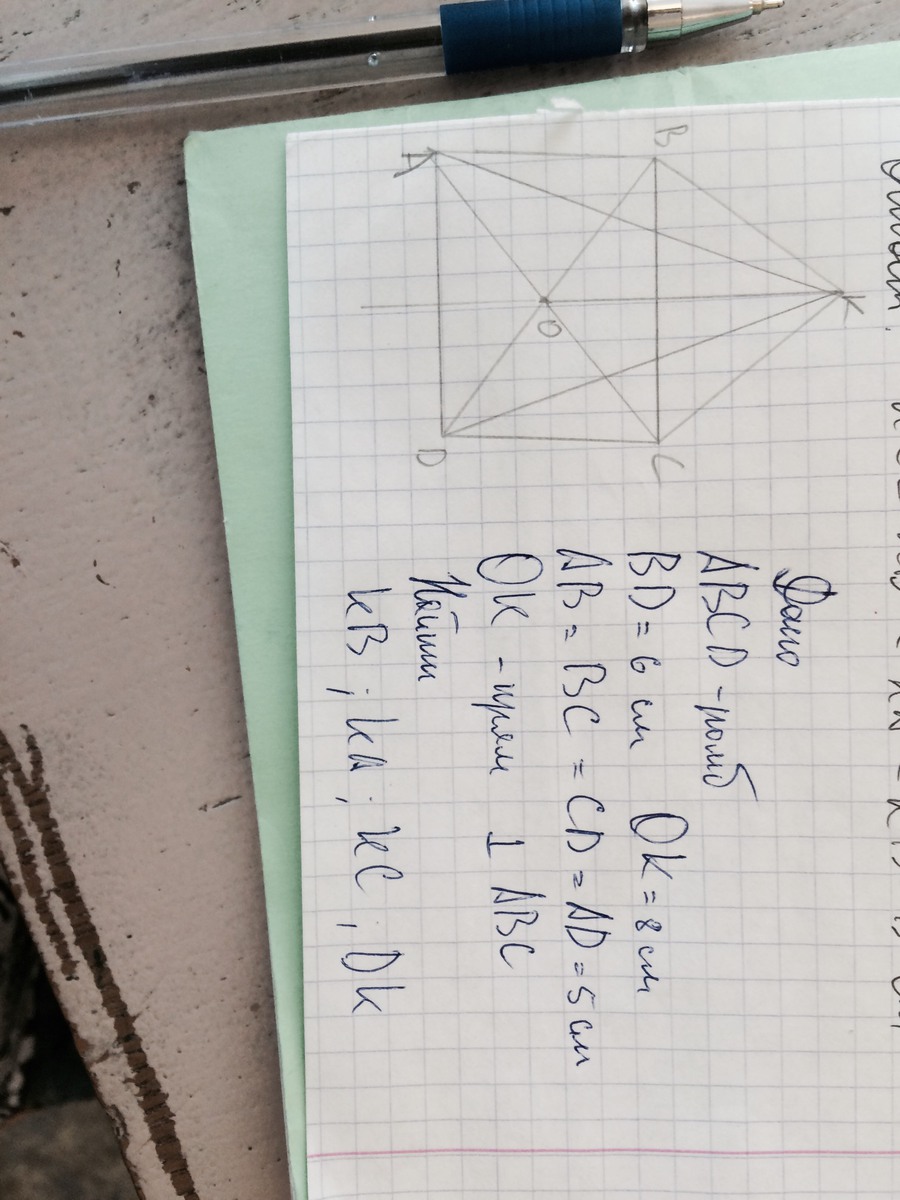 A
B
O
K
D
C
Дано
ABCD - ромб
BD = 6 см OK = 8 см
AB = BC = CD = AD = 5 см
OK - прям ⊥ ABC
Найти
kB ; kA ; kC ; Dk